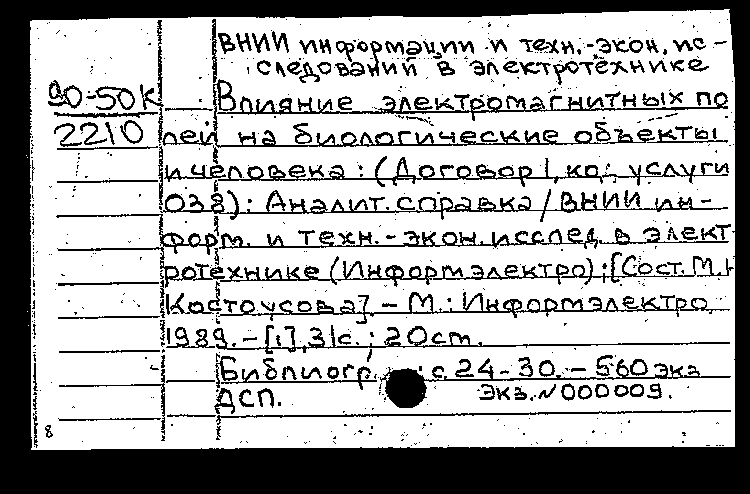 ВНИИ информации и техн.-экон. ис-
следований в электротехнике
90-50К Влияние электромагнитных по
2210 лей на биологические объекты
и человека: (Договор 1, код услуги
038): Аналит. справка / ВНИИ ин-
форм. и техн.-экон. исслед. в элект
ротехнике (Информэлектро); [Сост. М.
Костоусова]. - М.: Информэлектро,
1989. - [1], 31с.; 20см.
Библиогр.: с. 24-30. - 560 экз
ДСП. Экз. N 000009.
8